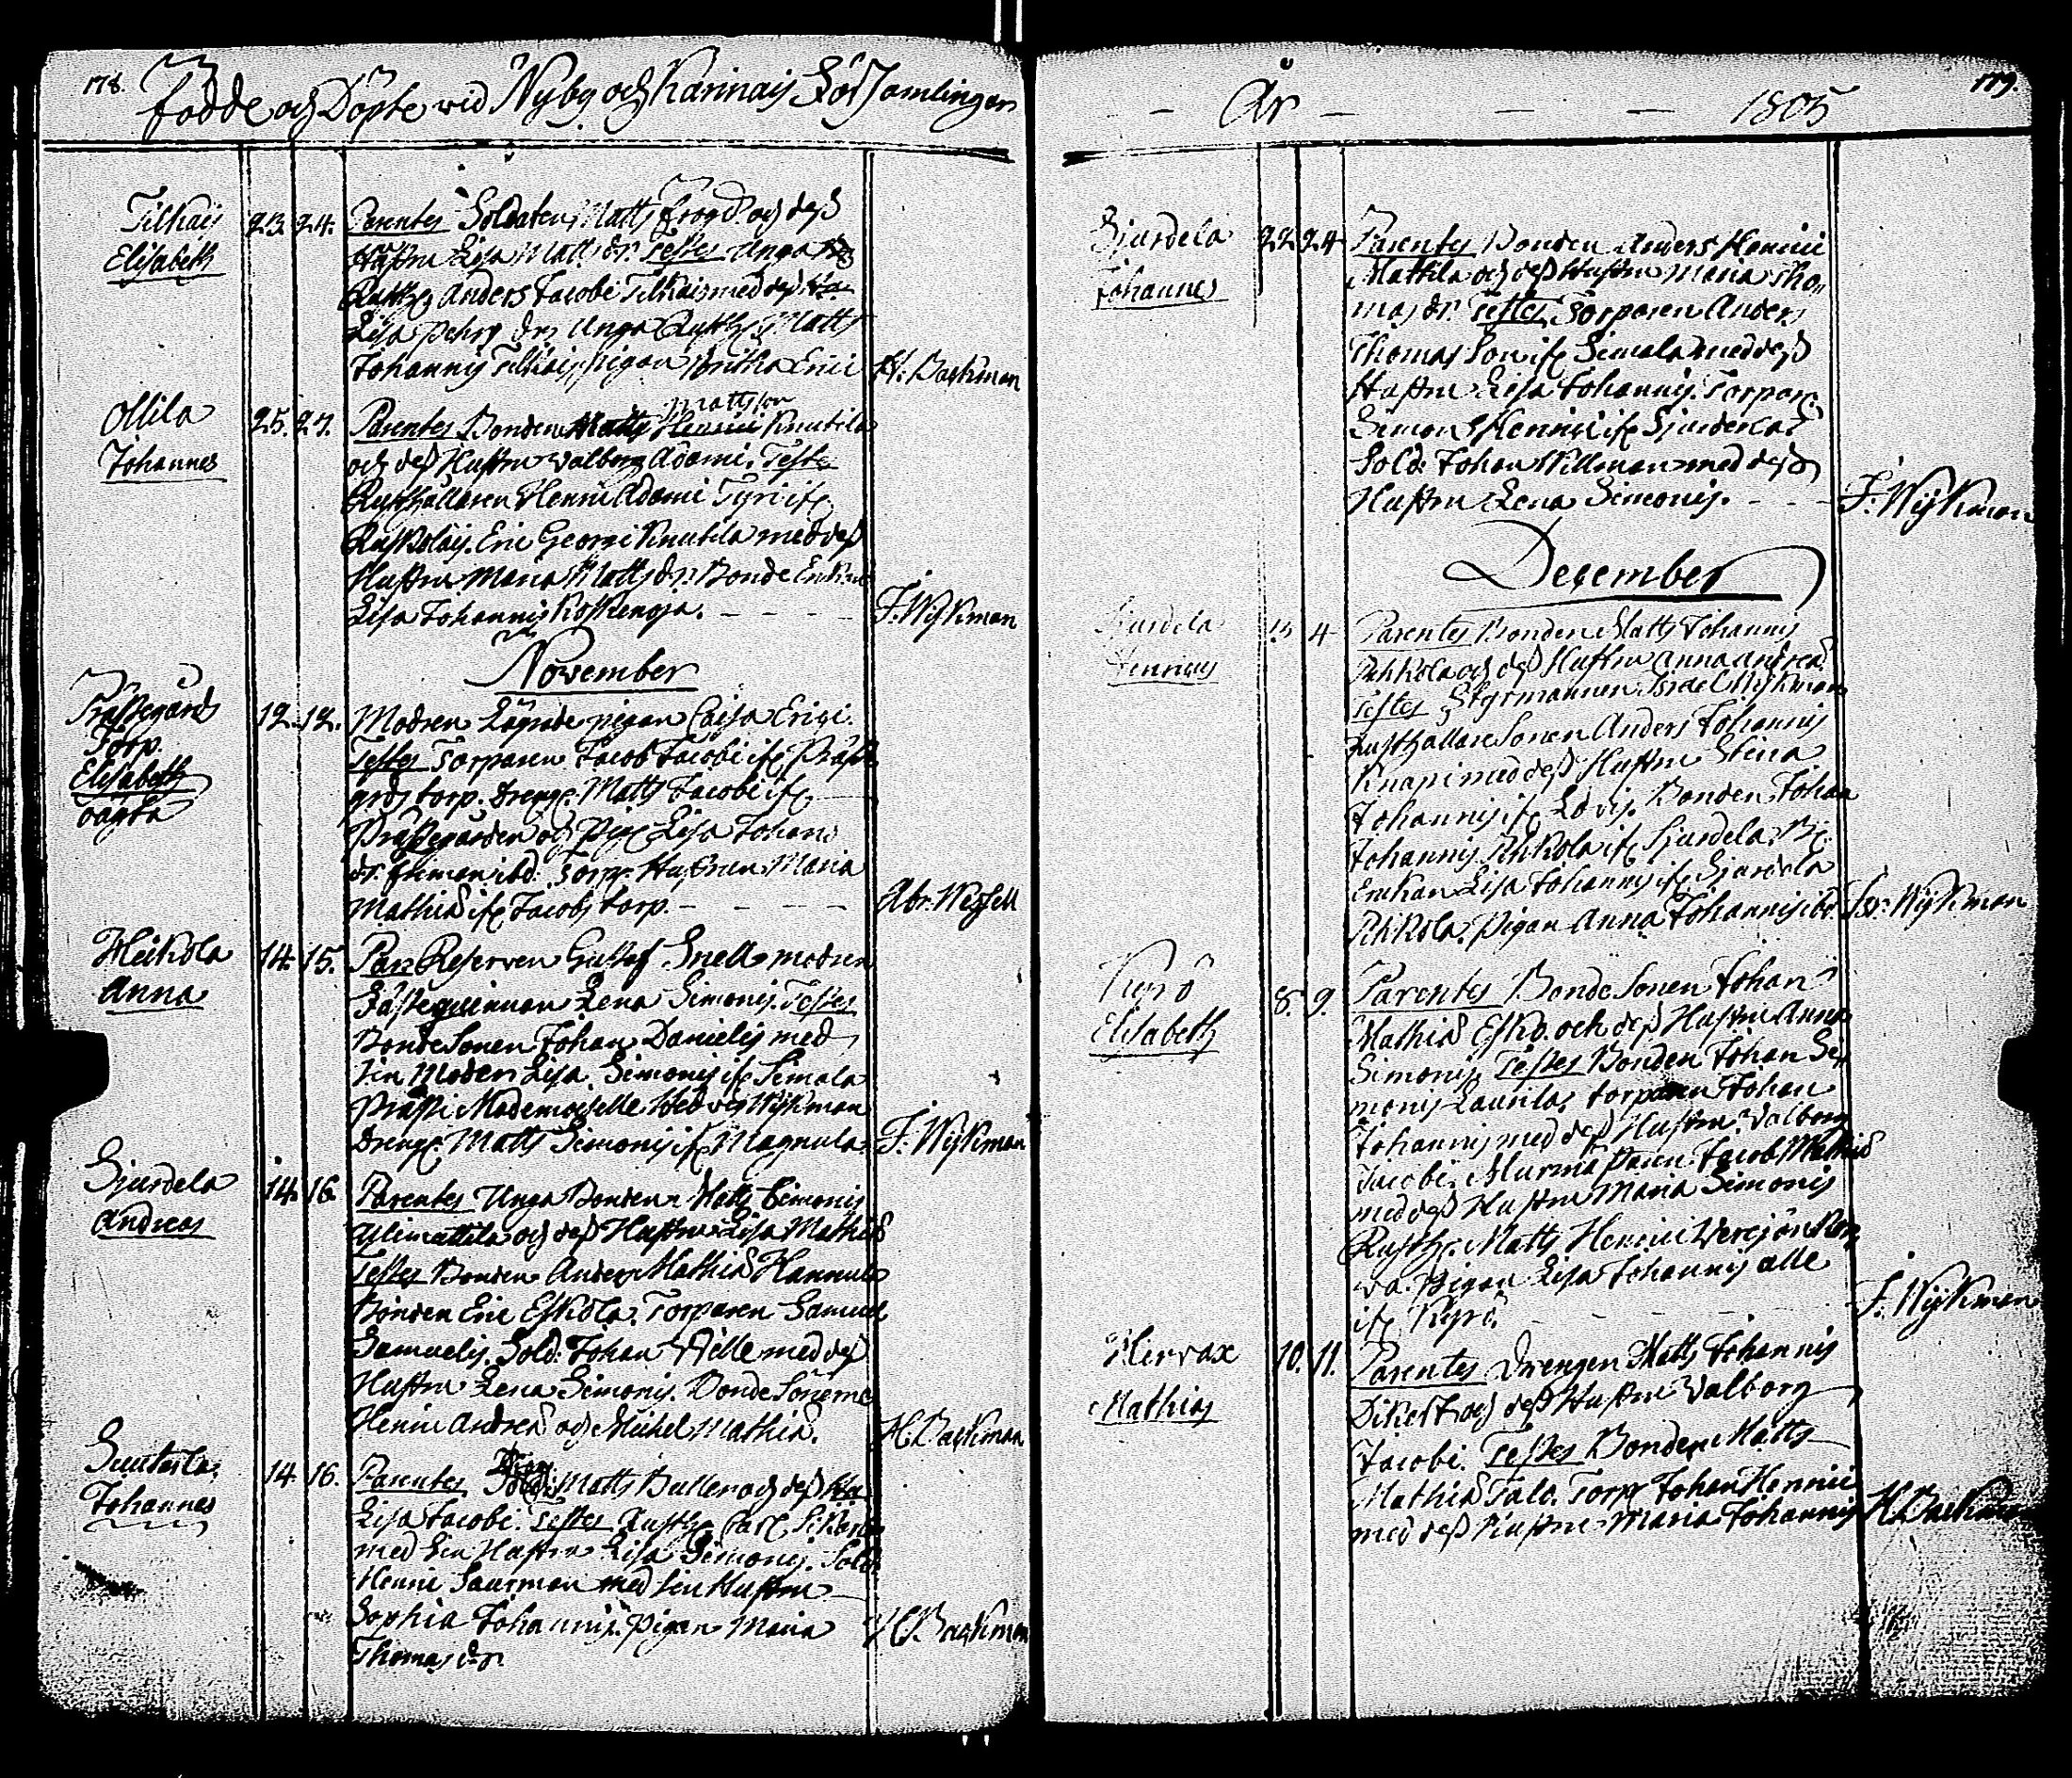 178.
Födde och Döpte vid Nyby och Karinais Församlingar
Tilkais
Elisabeth
23. 24.
Parentes Soldaten Matts Frogd och dess
Hustru Lisa Matts dr. Testes Unga
Rusth. Anders Jacobi Tilkais med dess Hu
Lisa Pehrs dr. Unga Rusth. Matts
Johannis Tilkais, pigan Britha Erici
H. Backman
Ollila
Johannes
25. 27.
Mattsson
Parentes Bonden Matts Henrici Knutila
och dess Hustru Valborg Adami. Teste
Rusthållaren Henric Adami Tyri if.
Ruskolais. Eric Georgi Knutila med dess
Hustru Maria Matts dr. Bonde Enkan
Lisa Johannis Koskenoja.
J. Wijkman
November
Prästegårds
Torp.
Elisabeth
oägta
12. 12.
Modren Lägrade pigan Caisa Erici.
Testes Torparen Jacob Jacobi if. Präste
grds torp. Dreng. Matts Jacobi if.
Prästegården och Pig. Lisa Johans
dr. Ekman ibd. Torp. Hustrun Maria
Mathiæ if. Jacobs torp.
Abr. Wessell
Heikola
Anna
14. 15.
Par. Reserven Gustaf Snell modren
Lösqvinnan Lena Simonis. Testes
Bonde Sonen Johan Danielis med
sin Moder Lisa Simonis if. Simala
Prästi Mademoiselle Hedvig Wijkman
Dreng. Matts Simonis if. Magnula
J. Wijkman
Sjurdela
Andreas
14. 16
Parentes Unga Bonden Matts Simonis
Ylimattila och dess Hustru Lisa Mathiæ
Testes Bonden Anders Mathiæ Hannula
Bonden Eric Eskola. Torparen Samuel
Samuelis. Sold: Johan Wille med dess
Hustru Lena Simonis. Bonde Sönerne
Henric Andreæ och Michel Mathiæ.
H. Backman
Suutarla
Johannes
14 16.
Parentes Sold: Matts Buller och dess Hu
Lisa Jacobi. Testes Rusth. Carl
med sin Hustru Lisa Simonis. Sold
Henric Saurman med sin Hustru
Sophia Johannis. Pigan Maria
Thomas dr.
H. Backman
År 1805
179.
Sjurdela
Johannes
22 24
Parentes Bonden Anders Henrici
Mattila och dess Hustru Maria Tho
mas dr. Testes Torparen Anders
Thomas Son if. Simala med dess
Hustru Lisa Johannis. Torpar.
Simon Henrici if. Sjurdela
Sold: Johan Willman med dess
Hustru Lena Simonis.
J. Wijkman
December
Sjurdela
Henricus
4
Parentes Bonden Matts Johannis
Pihkola och dess Hustru Anna Andreæ
Testes Styrmannen Israel Wijkman
Rusthållare Sonen Anders Johannis
Knapi med dess Hustru Stina
Johannis if. Bonden Johan
Johannis Pihkola if. Sjurdela. B.
Enkan Lisa Johannis if. Sjurdela
Pihkola. Pigan Anna Johannis ibd.
Isr. Wijkman
Kyrö
Elisabeth
8. 9.
Parentes Bonde Sonen Johan
Mathiæ Esko. och dess Hustru Anna
Simonis. Testes Bonden Johan Si
monis Laurila. torparen Johan
Johannis med dess Hustru Valborg
Jacobi. Jacob Mathiæ
med dess Hustru Maria Simonis
Rusth. Matts Henrici
va. Pigan Lisa Johannis alle
if. Kyrö.
J. Wijkman
Hirvax
Mathias
10. 11.
Parentes Drengen Matts Johannis
Dikert och dess Hustru Valborg
Jacobi. Testes Bonden Matts
Mathiæ Talo. Torp. Johan Henrici
med dess Hustru Maria Johannis
H. Backman